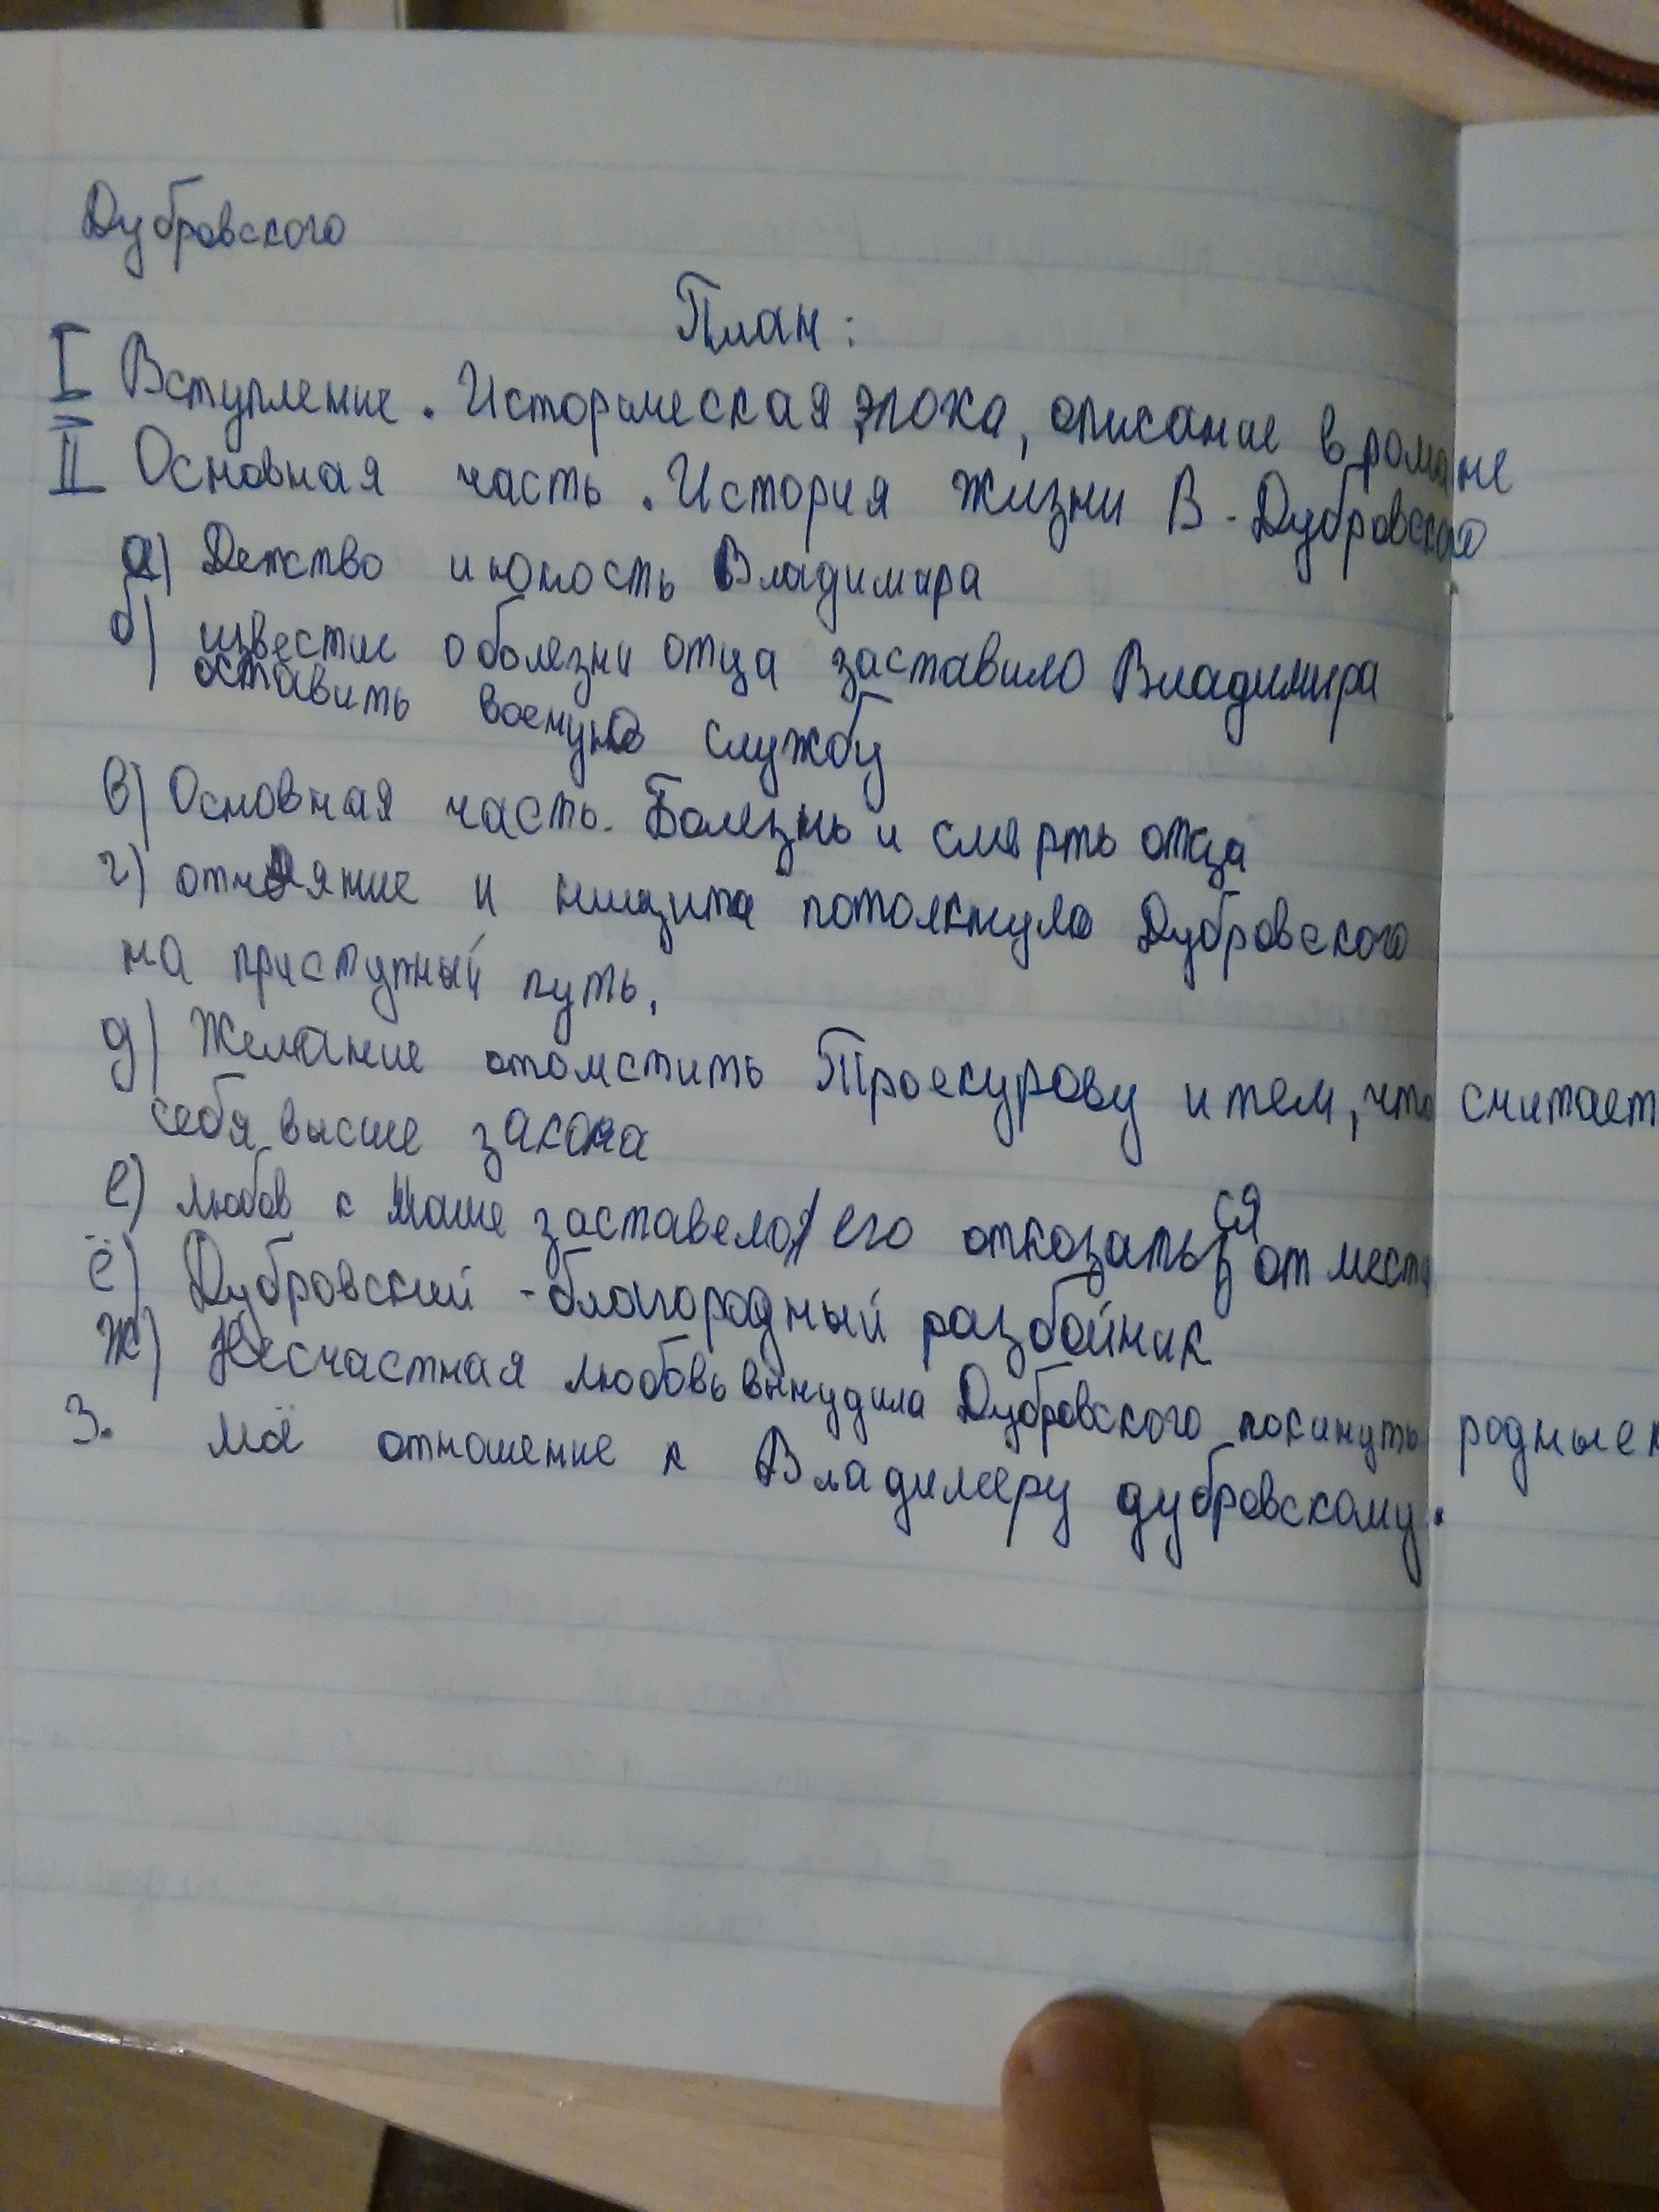 Дубровского
План:
I Вступление. Историческая эпоха, описание в романе
II Основная часть. История жизни В. Дубровского
а) Детство и юность Владимира
б) известие о болезни отца заставило Владимира
оставить военую службу
в) Основная часть. Болезнь и смерть отца
г) отчаяние и нищита потолкнуло Дубровского
на приступный путь,
д) Желание отомстить Троекурову и тем, что считает
себя высше закона
е) любов к Маше заставело его отказаться от мести
ё) Дубровский - благородный разбойник
ж) Несчастная любовь вынудила Дубровского покинуть родные
3. Моё отношение к Владимеру дубровскому.